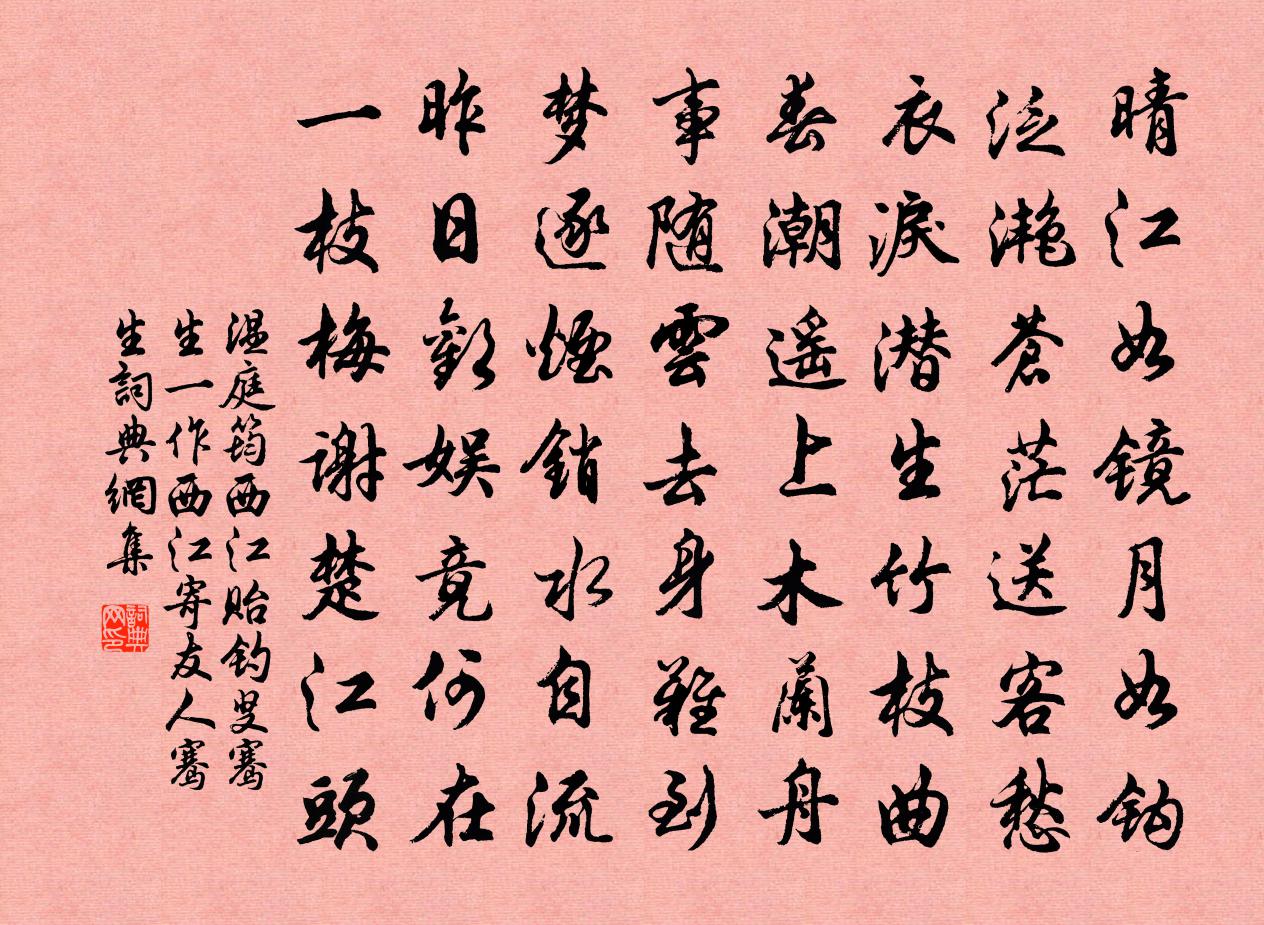 晴江如镜月如钩
泛滟蒼茫送客愁
衣淚潜生竹枝曲
春潮遥上木蘭舟
事随雲去身難到
梦逐煙銷水自流
昨日歡娱竟何在
一枝梅谢楚江頭
温庭筠西江贻钓叟骞
生一作西江寄友人骞
生詞典網集
詞典网印